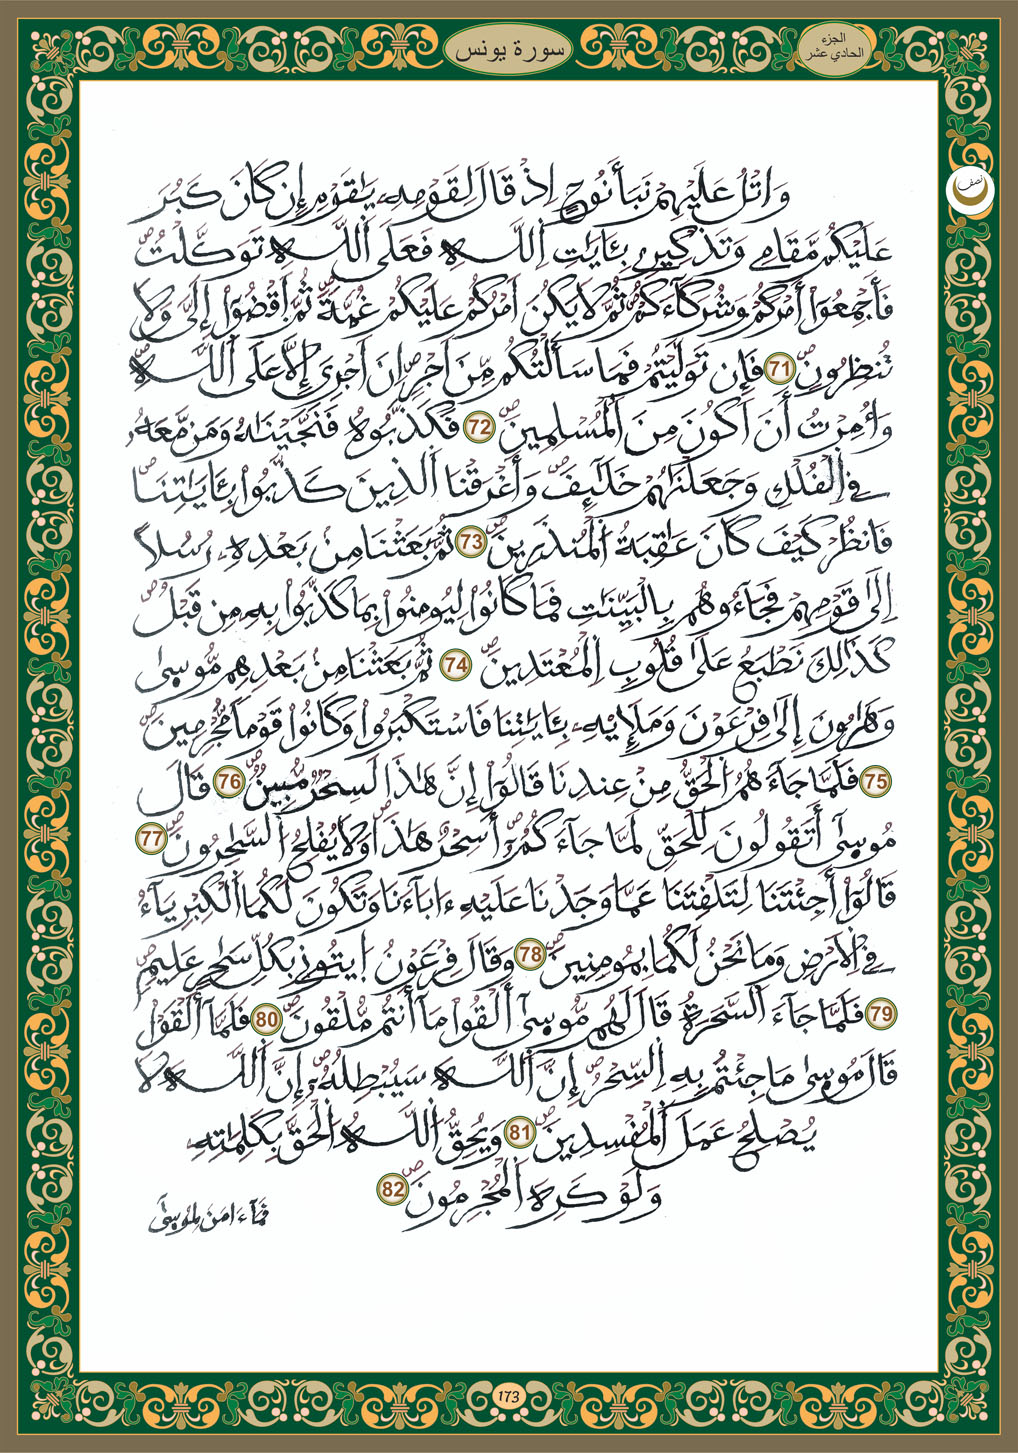 الجزء
الحادي عشر
سورة يونس
نصف
وَاتْلُ عَلَيْهِمْ نَبَأَ نُوحٍ اِذْ قَالَ لِقَوْمِهِۦ يَٰقَوْمِ إِن كَانَ كَبُرَ
عَلَيْكُم مَّقَامِے وَتَذْكِيرِے بِـَٔايَٰتِ اِ۬للَّهِ فَعَلَى اَ۬للَّهِ تَوَكَّلْتُ ص
فَأَجْمِعُوٓاْ أَمْرَكُمْ وَشُرَكَآءَكُمْ ص ثُمَّ لَا يَكُنَ اَمْرُكُمْ عَلَيْكُمْ غُمَّةً ص ثُمَّ اَ۪قْضُوٓاْ إِلَيَّ وَلَا
تُنظِرُونِ ص 71 فَإِن تَوَلَّيْتُمْ فَمَا سَأَلْتُكُم مِّنَ اَجْرٍ ص اِنَ اَجْرِيَ إِلَّا عَلَى اَ۬للَّهِ ص
وَأُمِرْتُ أَنَ اَكُونَ مِنَ اَ۬لْمُسْلِمِينَ ص 72 فَكَذَّبُوهُ فَنَجَّيْنَٰهُ وَمَن مَّعَهُۥ
فِے اِ۬لْفُلْكِ وَجَعَلْنَٰهُمْ خَلَٰٓئِفَ ص وَأَغْرَقْنَا اَ۬لذِينَ كَذَّبُواْ بِـَٔايَٰتِنَا ص
فَانظُرْ كَيْفَ كَانَ عَٰقِبَةُ اُ۬لْمُنذَرِينَ ص 73 ثُمَّ بَعَثْنَا مِنۢ بَعْدِهِۦ رُسُلاً
إِلَىٰ قَوْمِهِمْ فَجَآءُوهُم بِالْبَيِّنَٰتِ فَمَا كَانُواْ لِيُومِنُواْ بِمَا كَذَّبُواْ بِهِۦ مِن قَبْلُ ص
كَذَٰلِكَ نَطْبَعُ عَلَىٰ قُلُوبِ اِ۬لْمُعْتَدِينَ ص 74 ثُمَّ بَعَثْنَا مِنۢ بَعْدِهِم مُّوسَىٰ
وَهَٰرُونَ إِلَىٰ فِرْعَوْنَ وَمَلَإِيْهِۦ بِـَٔايَٰتِنَا فَاسْتَكْبَرُواْ وَكَانُواْ قَوْماً مُّجْرِمِينَ ص
75 فَلَمَّا جَآءَهُمُ اُ۬لْحَقُّ مِنْ عِندِنَا قَالُوٓاْ إِنَّ هَٰذَا لَسِحْرٌ مُّبِينٌ ص 76 قَالَ
مُوسَىٰٓ أَتَقُولُونَ لِلْحَقِّ لَمَّا جَآءَكُمُۥٓ ص أَسِحْرٌ هَٰذَا ص وَلَا يُفْلِحُ اُ۬لسَّٰحِرُونَ ص 77
قَالُوٓاْ أَجِئْتَنَا لِتَلْفِتَنَا عَمَّا وَجَدْنَا عَلَيْهِ ءَابَآءَنَا وَتَكُونَ لَكُمَا اَ۬لْكِبْرِيَآءُ
فِے اِ۬لَارْضِ وَمَا نَحْنُ لَكُمَا بِمُومِنِينَ ص 78 وَقَالَ فِرْعَوْنُ اُ۪يتُونِے بِكُلِّ سَٰحِرٍ عَلِيمٍ ص
79 فَلَمَّا جَآءَ اَ۬لسَّحَرَةُ قَالَ لَهُم مُّوسَىٰٓ أَلْقُواْ مَآ أَنتُم مُّلْقُونَ ص 80 فَلَمَّآ أَلْقَوْاْ
قَالَ مُوسَىٰ مَا جِئْتُم بِهِ اِ۬لسِّحْرُ ص إِنَّ اَ۬للَّهَ سَيُبْطِلُهُۥٓ ص إِنَّ اَ۬للَّهَ لَا
يُصْلِحُ عَمَلَ اَ۬لْمُفْسِدِينَ ص 81 وَيُحِقُّ اُ۬للَّهُ اُ۬لْحَقَّ بِكَلِمَٰتِهِۦ
وَلَوْ كَرِهَ اَ۬لْمُجْرِمُونَ ص 82
فَمَآ ءَامَنَ لِمُوسَىٰٓ
173